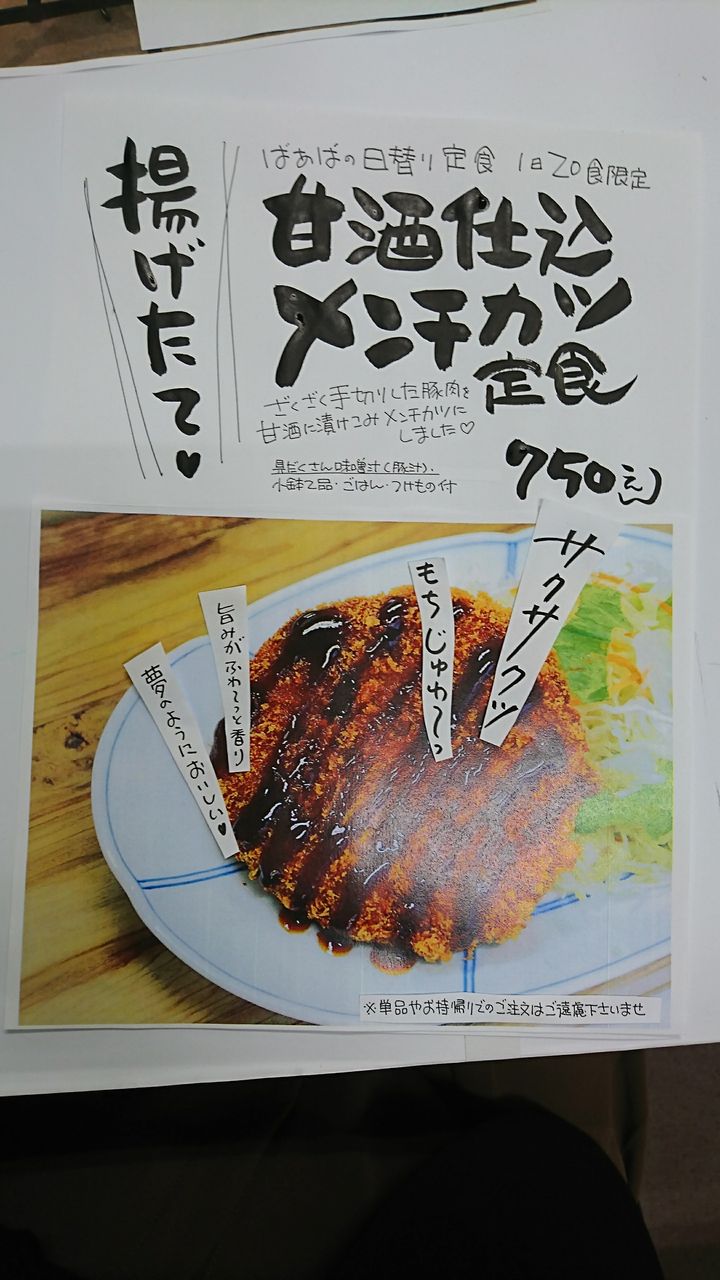 ばあばの日替り定食 1日20食限定
甘酒仕込
メンチカツ
定食
揚げたて♥
ざくざく手切りした豚肉を
甘酒に漬けこみメンチカツに
しました♡
具だくさん味噌汁(豚汁)・
小鉢2品・ごはん・つけもの付
750えん
サクサクッ
もちじゅわ〜っ
旨みがふわ〜っと香り
夢のようにおいしい♥
※単品やお持帰りでのご注文はご遠慮下さいませ